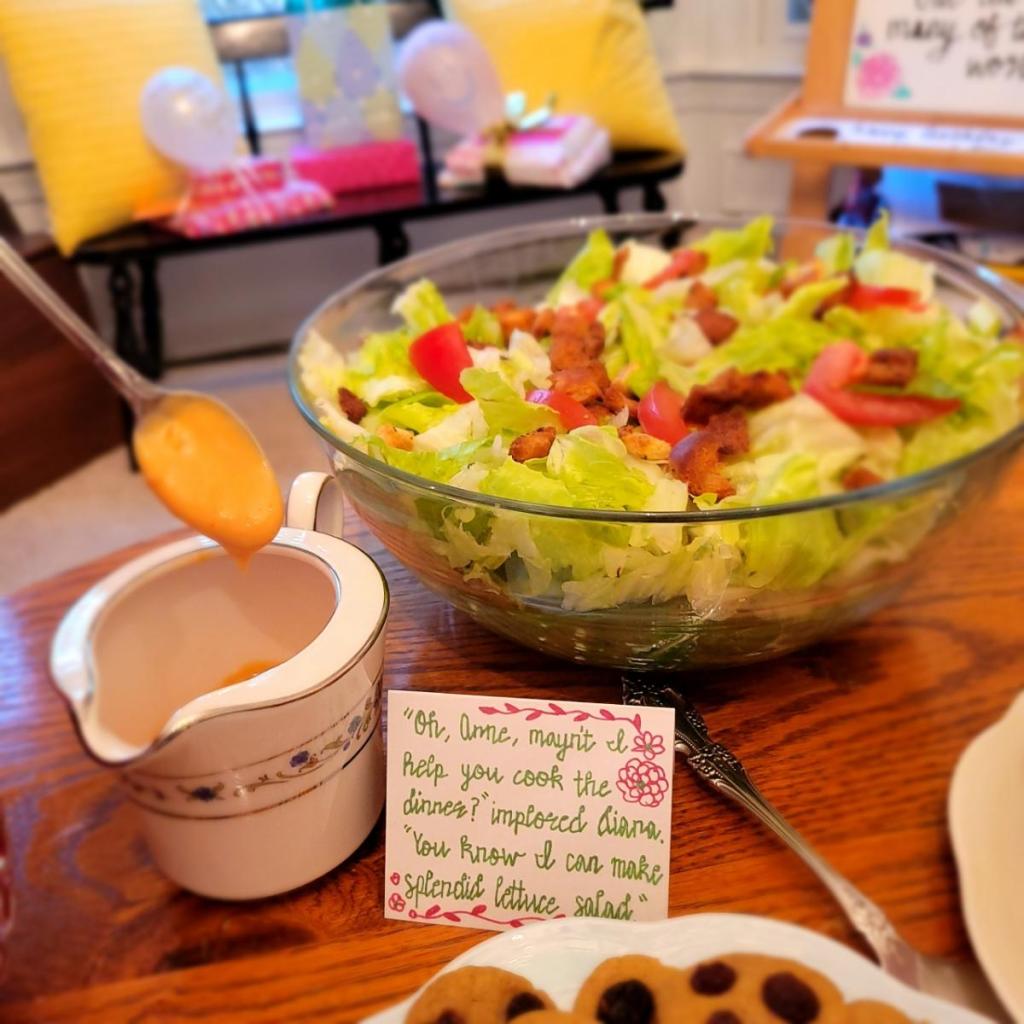 many of t
"Oh, Anne, mayn't I
help you cook the
dinner?" implored Diana.
"You know I can make
splendid lettuce salad."